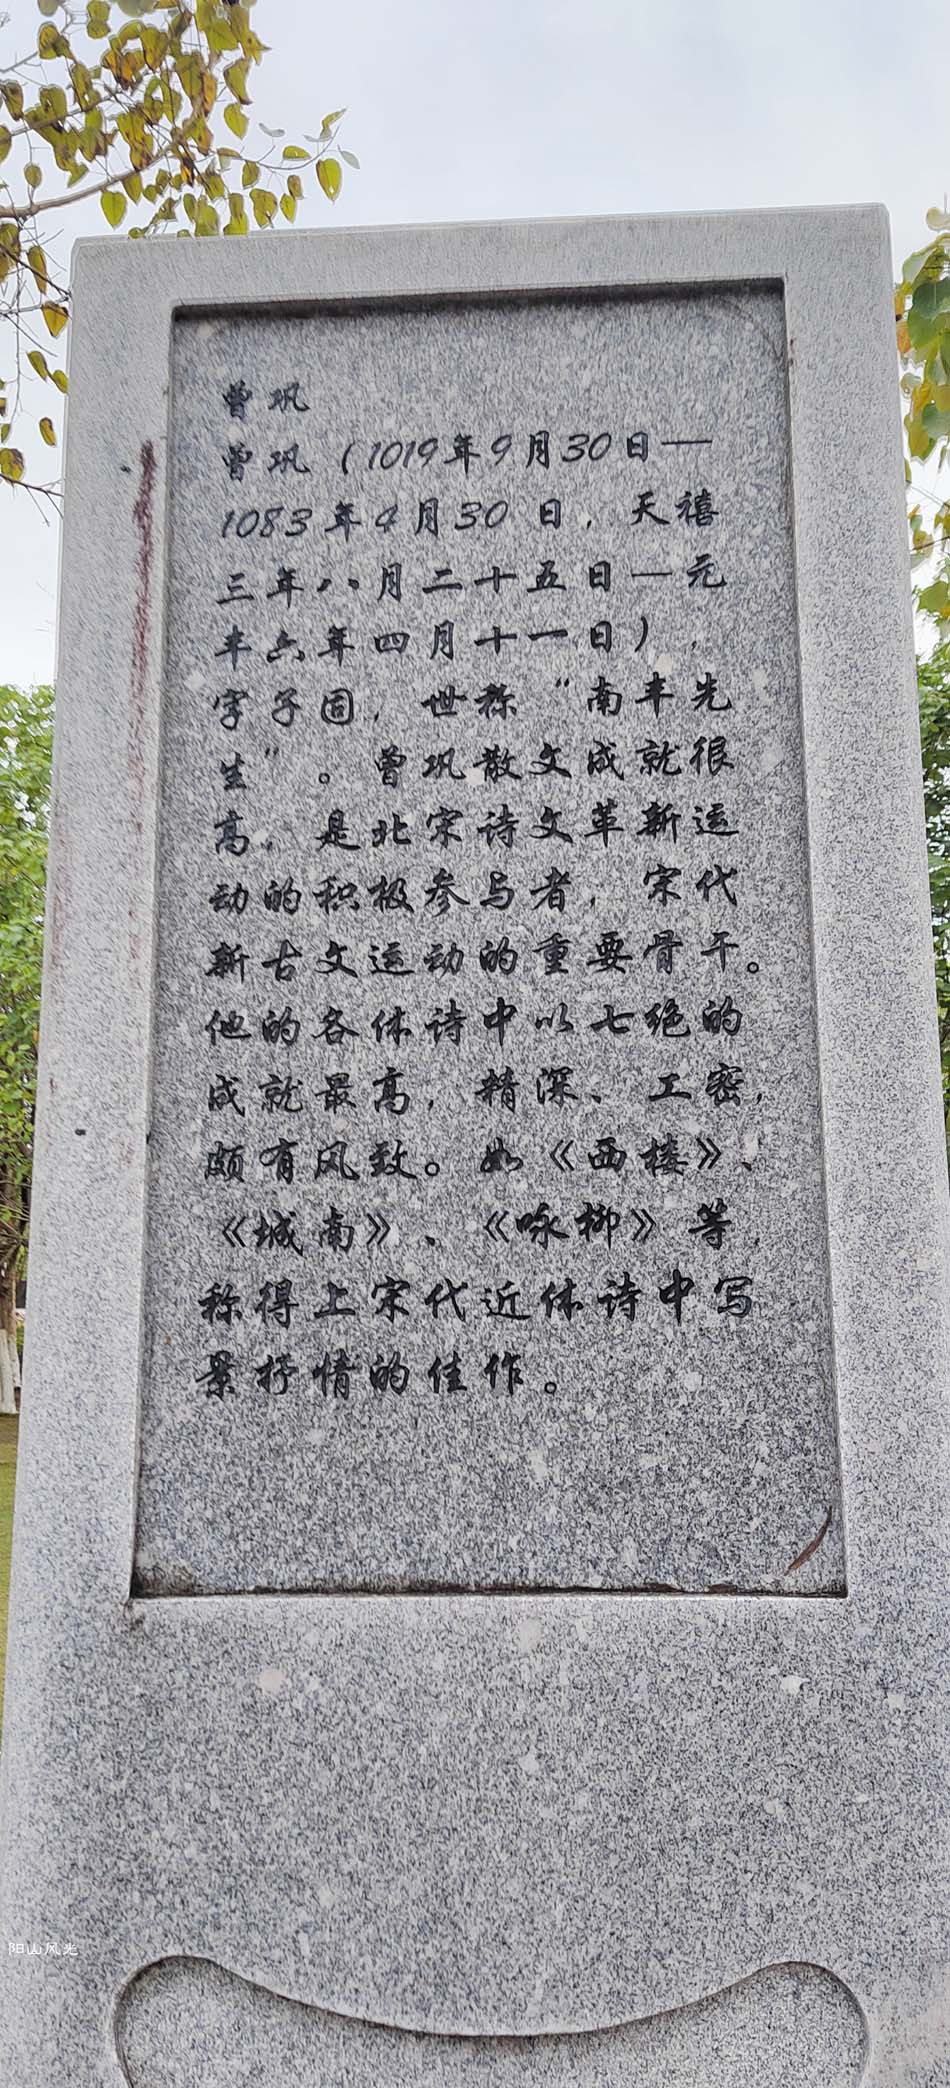 曾巩
曾巩（1019年9月30日—
1083年4月30日，天禧
三年八月二十五日—元
丰六年四月十一日），
字子固，世称“南丰先
生”。曾巩散文成就很
高，是北宋诗文革新运
动的积极参与者，宋代
新古文运动的重要骨干。
他的各体诗中以七绝的
成就最高，精深、工密，
颇有风致。如《西楼》、
《城南》、《咏柳》等，
称得上宋代近体诗中写
景抒情的佳作。
阳山风光